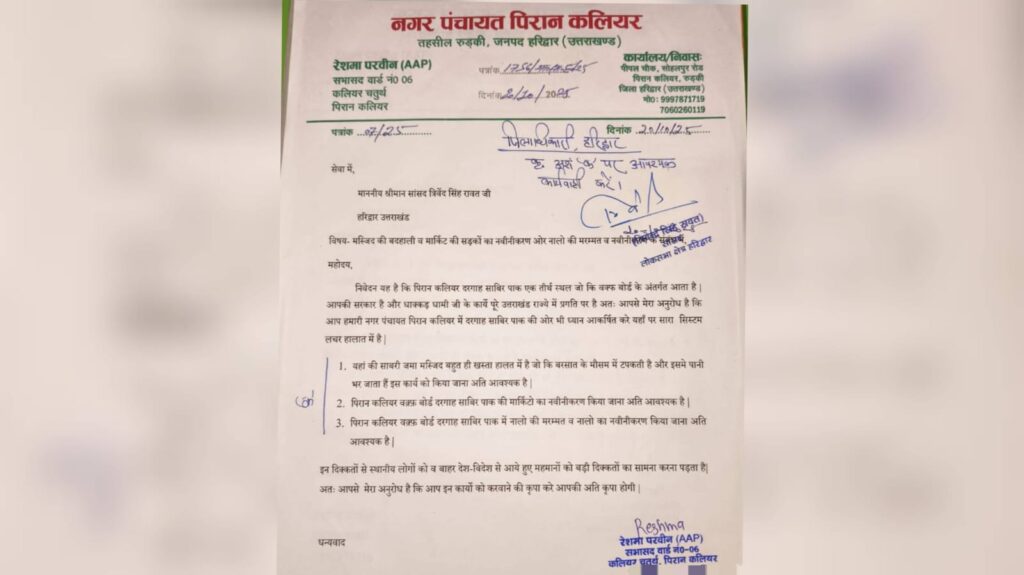 नगर पंचायत पिरान कलियर
तहसील रुड़की, जनपद हरिद्वार (उत्तराखण्ड)
रेशमा परवीन (AAP)
सभासद वार्ड नं0 06
कलियर चतुर्थ
पिरान कलियर
पत्रांक
दिनांक 2025
कार्यालय/निवासः
पीपल चौक, सोहलपुर रोड
पिरान कलियर, रुड़की
जिला हरिद्वार (उत्तराखण्ड)
मो0: 9997871719
7060260119
पत्रांक ...07/25............
दिनांक 20/10/25
जिलाधिकारी, हरिद्वार
कृ. अंश 'क' पर आवश्यक
कार्यवाही करें।
सेवा में,
माननीय श्रीमान सांसद त्रिवेंद सिंह रावत जी
हरिद्वार उत्तराखंड
(त्रिवेन्द्र सिंह रावत)
सांसद
लोकसभा क्षेत्र हरिद्वार
विषय- मस्जिद की बदहाली व मार्किट की सड़कों का नवीनीकरण ओर नालो की मरम्मत व नवीनीकरण के
महोदय,
निवेदन यह है कि पिरान कलियर दरगाह साबिर पाक एक तीर्थ स्थल जो कि वक्फ बोर्ड के अंतर्गत आता है |
आपकी सरकार है और धाक्कड़ धामी जी के कार्ये पूरे उत्तराखंड राज्ये में प्रगति पर है अतः आपसे मेरा अनुरोध है कि
आप हमारी नगर पंचायत पिरान कलियर में दरगाह साबिर पाक की ओर भी ध्यान आकर्षित करे यहाँ पर सारा सिस्टम
लचर हालात में है |
1. यहां की साबरी जमा मस्जिद बहुत ही खस्ता हालत में है जो कि बरसात के मौसम में टपकती है और इसमे पानी
भर जाता हैं इस कार्य को किया जाना अति आवश्यक है |
2. पिरान कलियर वक़्फ़ बोर्ड दरगाह साबिर पाक की मार्किटो का नवीनीकरण किया जाना अति आवश्यक है |
3. पिरान कलियर वक़्फ़ बोर्ड दरगाह साबिर पाक में नालो की मरम्मत व नालो का नवीनीकरण किया जाना अति
आवश्यक है |
'क'
इन दिक्कतों से स्थानीय लोगों को व बाहर देश-विदेश से आये हुए महमानों को बड़ी दिक्कतों का सामना करना पड़ता है|
अतः आपसे मेरा अनुरोध है कि आप इन कार्यो को करवाने की कृपा करे आपकी अति कृपा होगी |
धन्यवाद
Reshma
रेशमा परवीन (AAP)
सभासद वार्ड नं0-06
कलियर चतुर्थ, पिरान कलियर